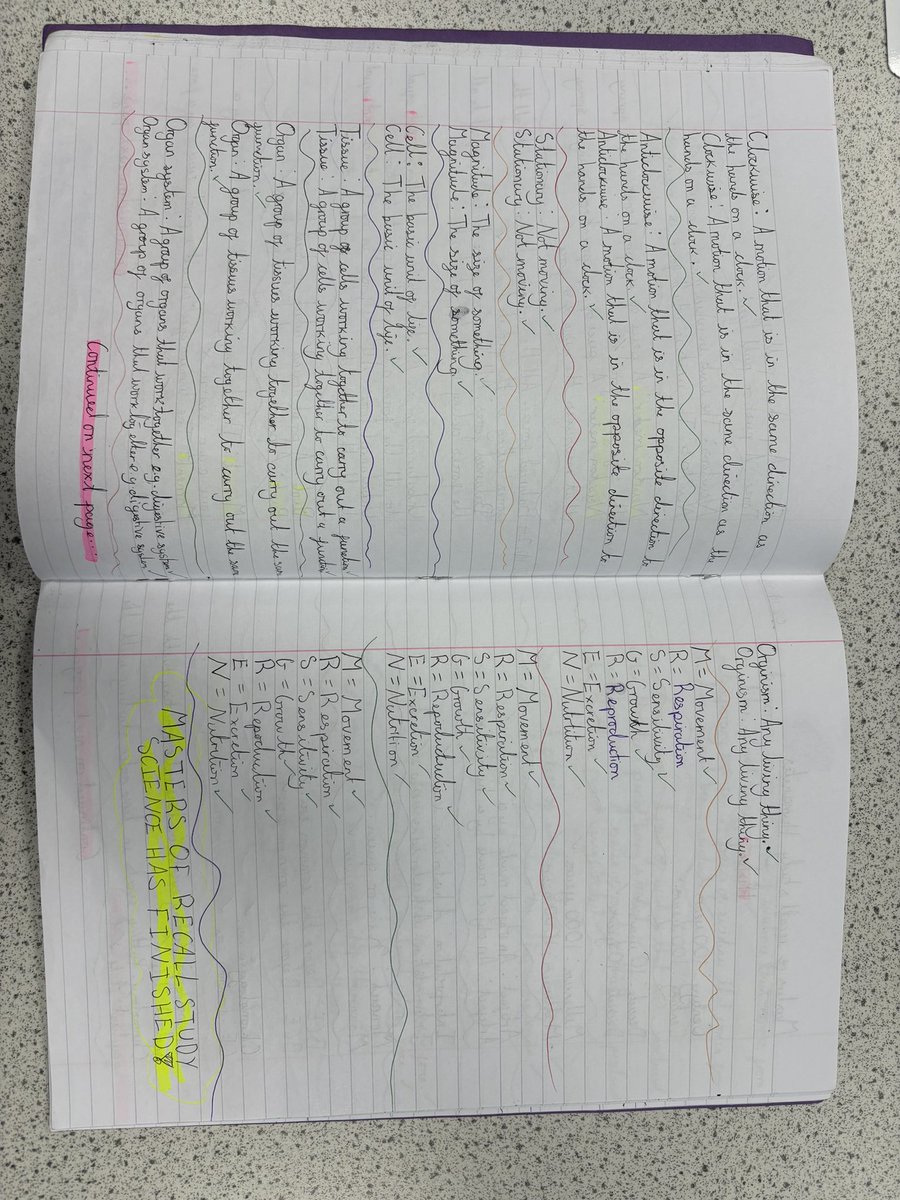 Clockwise: A motion that is in the same direction as
the hands on a clock. ✓
Clockwise: A motion that is in the same direction as the
hands on a clock. ✓
Anticlockwise: A motion that is in the opposite direction to
the hands on a clock ✓
Anticlockwise: A motion that is in the opposite direction to
the hands on a clock. ✓
Stationary: Not moving. ✓
Stationary: Not moving. ✓
Magnitude: The size of something. ✓
Magnitude: The size of something ✓
Cell: The basic unit of life. ✓
Cell: The basic unit of life. ✓
Tissue: A group of cells working together to carry out a function
Tissue: A group of cells working together to carry out a
Organ: A group of tissues working together to carry out the
function. ✓
Organ: A group of tissues working together to carry out the
function.
Organ system: A group of organs that work together e.g. digestive system
Organ system: A group of organs that work e.g digestive system
Continued on next page....
Orginism: Any living thing. ✓
Orginism: Any living thing. ✓
M = Movement ✓
R = Respiration
S = Sensitivity ✓
G = Growth ✓
R = Reproduction
E = Excretion ✓
N = Nutrition ✓
M = Movement ✓
R = Respiration ✓
S = Sensitivity ✓
G = Growth ✓
R = Reproduction ✓
E = Excretion ✓
N = Nutrition ✓
M = Movement ✓
R = Respiration ✓
S = Sensitivity ✓
G = Growth ✓
R = Reproduction ✓
E = Excretion ✓
N = Nutrition ✓
MASTERS OF RECALL STUDY
SCIENCE HAS FINISHED